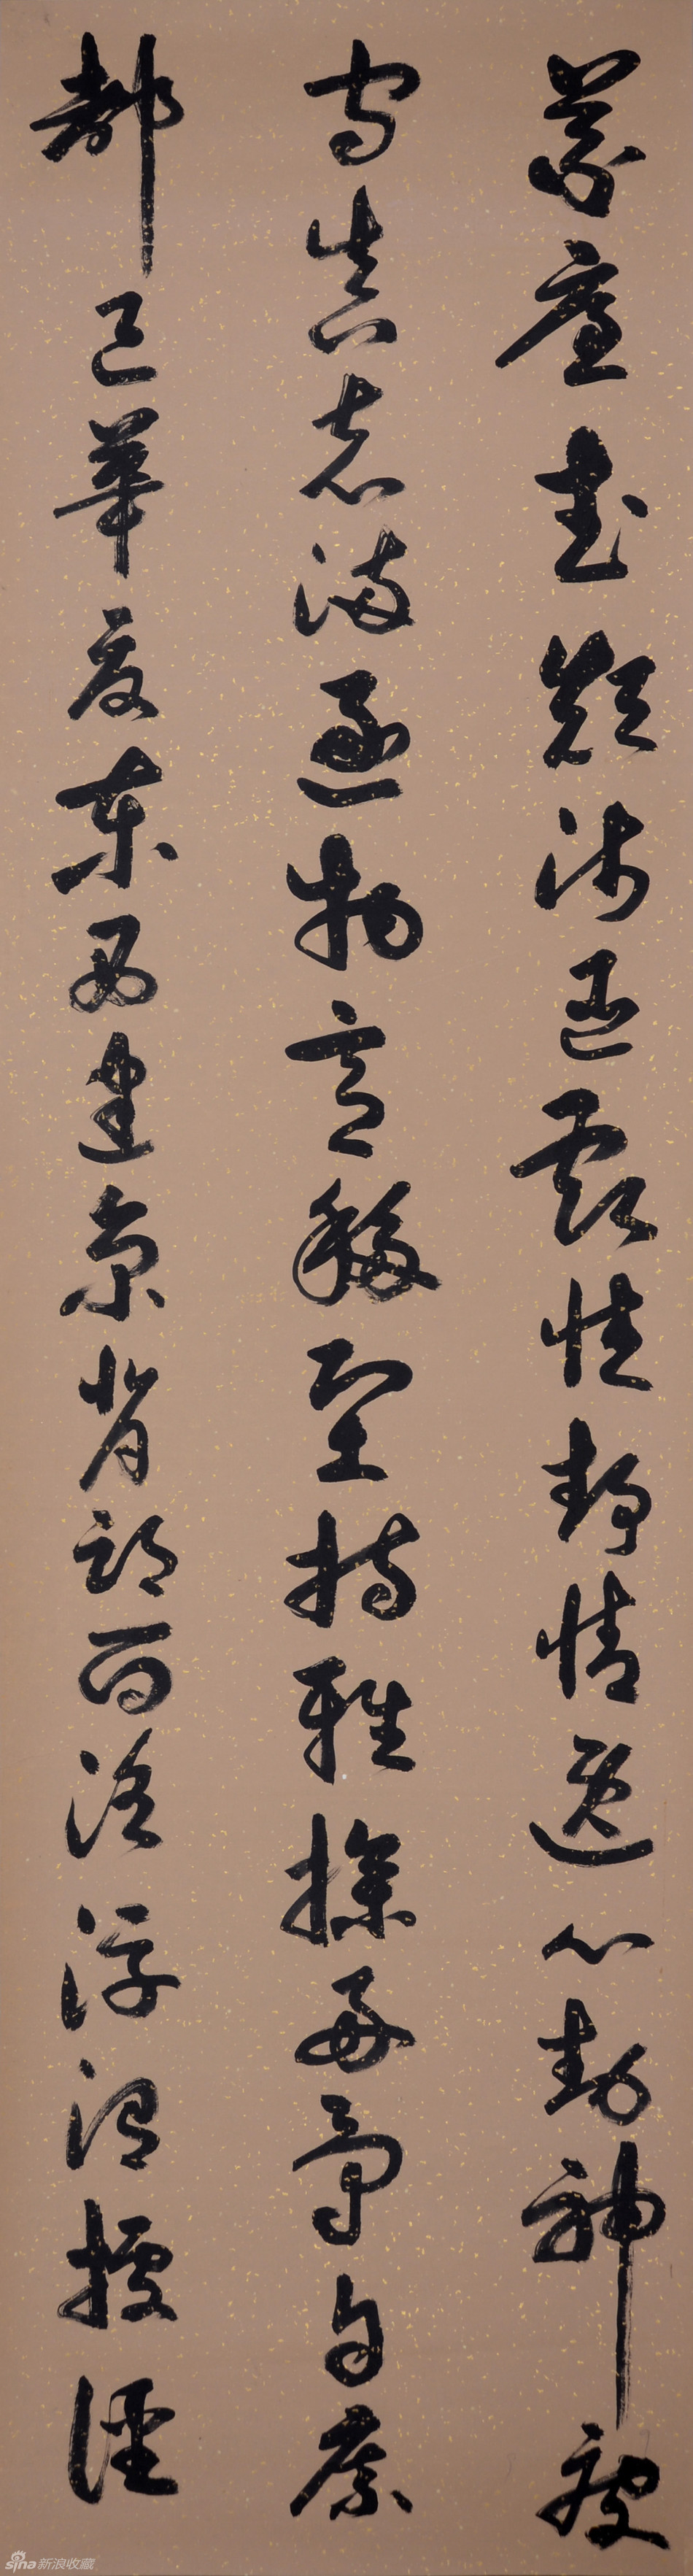 義廉退顛沛匪虧性靜情逸心動神疲
守真志滿逐物意移堅持雅操好爵自縻
都邑華夏東西二京背邙面洛浮渭據涇
sina 新浪收藏